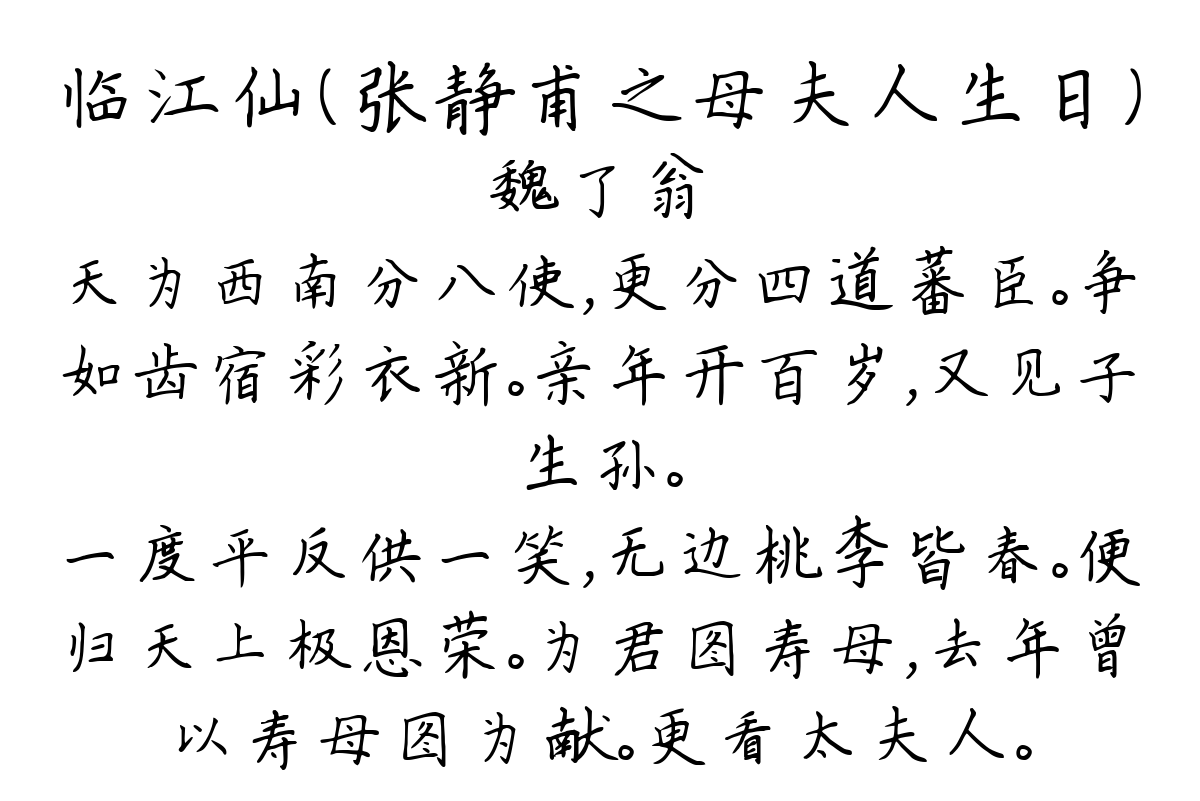 临江仙(张静甫之母夫人生日)
魏了翁
天为西南分八使,更分四道蕃臣。争
如齿宿彩衣新。亲年开百岁,又见子
生孙。
一度平反供一笑,无边桃李皆春。便
归天上极恩荣。为君图寿母,去年曾
以寿母图为献。更看太夫人。